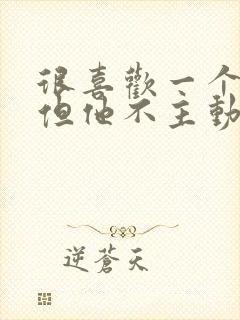 很喜歡一个
但他不主動
逆蒼天